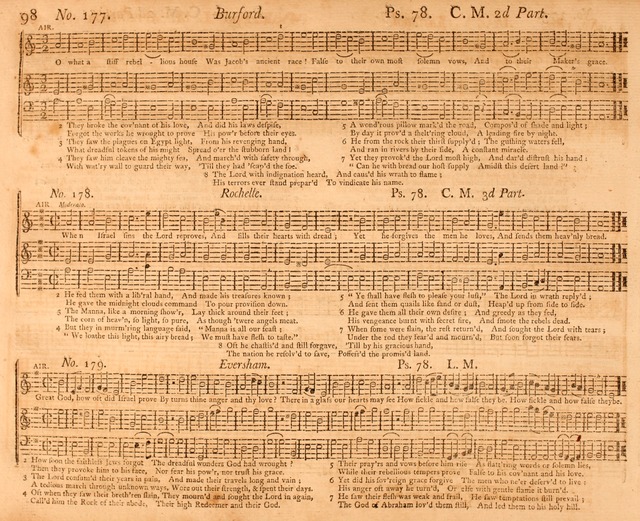 98 No. 177. Burford. Ps. 78. C. M. 2d Part.
AIR.
O what a stiff rebel - lious house Was Jacob's ancient race! False to their own most solemn vows, And to their Maker's grace.
2 They broke the cov'nant of his love, And did his laws despise,
Forgot the works he wrought to prove His pow'r before their eyes.
3 They saw the plagues on Egypt light, From his revenging hand,
What dreadful tokens of his might Spread o'er the stubborn land!
4 They saw him cleave the mighty sea, And march'd with safety through,
With wat'ry wall to guard their way, 'Till they had 'scap'd the foe.
5 A wond'rous pillow mark'd the road, Compos'd of shade and light;
By day it prov'd a shelt'ring cloud, A leading fire by night.
6 He from the rock their thirst supply'd; The gushing waters fell,
And ran in rivers by their side, A constant miracle.
7 Yet they provok'd the Lord most high, And dar'd distrust his hand:
"Can he with bread our host supply Amidst this desert land?"
8 The Lord with indignation heard, And caus'd his wrath to flame;
His terrors ever stand prepar'd To vindicate his name.
No. 178. Rochelle. Ps. 78. C. M. 3d Part.
AIR Moderato.
When Israel sins the Lord reproves, And fills their hearts with dread; Yet he forgives the men he loves, And sends them heav'nly bread.
2 He fed them with a lib'ral hand, And made his treasures known;
He gave the midnight clouds command To pour provision down.
3 The Manna, like a morning show'r, Lay thick around their feet;
The corn of heav'n, so light, so pure, As though 'twere angels meat.
4 But they in murm'ring language said, "Manna is all our feast;
"We loathe this light, this airy bread; We must have flesh to taste."
5 "Ye shall have flesh to please your lust," The Lord in wrath reply'd;
And sent them quails like sand or dust, Heap'd up from side to side.
6 He gave them all their own desire; And greedy as they fed,
His vengeance burnt with secret fire, And smote the rebels dead.
7 When some were slain, the rest return'd, And sought the Lord with tears;
Under the rod they fear'd and mourn'd, But soon forgot their fears.
8 Oft he chastis'd and still forgave, 'Till by his gracious hand,
The nation he resolv'd to save, Possess'd the promis'd land.
No. 179. Eversham. Ps. 78. L. M.
AIR.
Great God, how oft did Israel prove By turns thine anger and thy love? There in a glass our hearts may see How fickle and how false they be. How fickle and how false they be.
2 How soon the faithless Jews forgot The dreadful wonders God had wrought?
Then they provoke him to his face, Nor fear his pow'r, nor trust his grace.
3 The Lord consum'd their years in pain, And made their travels long and vain;
A tedious march through unknown ways, Wore out their strength, & spent their days.
4 Oft when they saw their breth'ren slain, They mourn'd and sought the Lord again,
Call'd him the Rock of their abode, Their high Redeemer and their God.
5 Their pray'rs and vows before him rise As flatt'ring words or solemn lies,
While their rebellious tempers prove False to his cov'nant and his love.
6 Yet did his sov'reign grace forgive The men who ne'er deserv'd to live;
His anger oft away he turn'd, Or else with gentle flame it burn'd.
7 He saw their flesh was weak and frail, He saw temptations still prevail;
The God of Abraham lov'd them still, And led them to his holy hill.